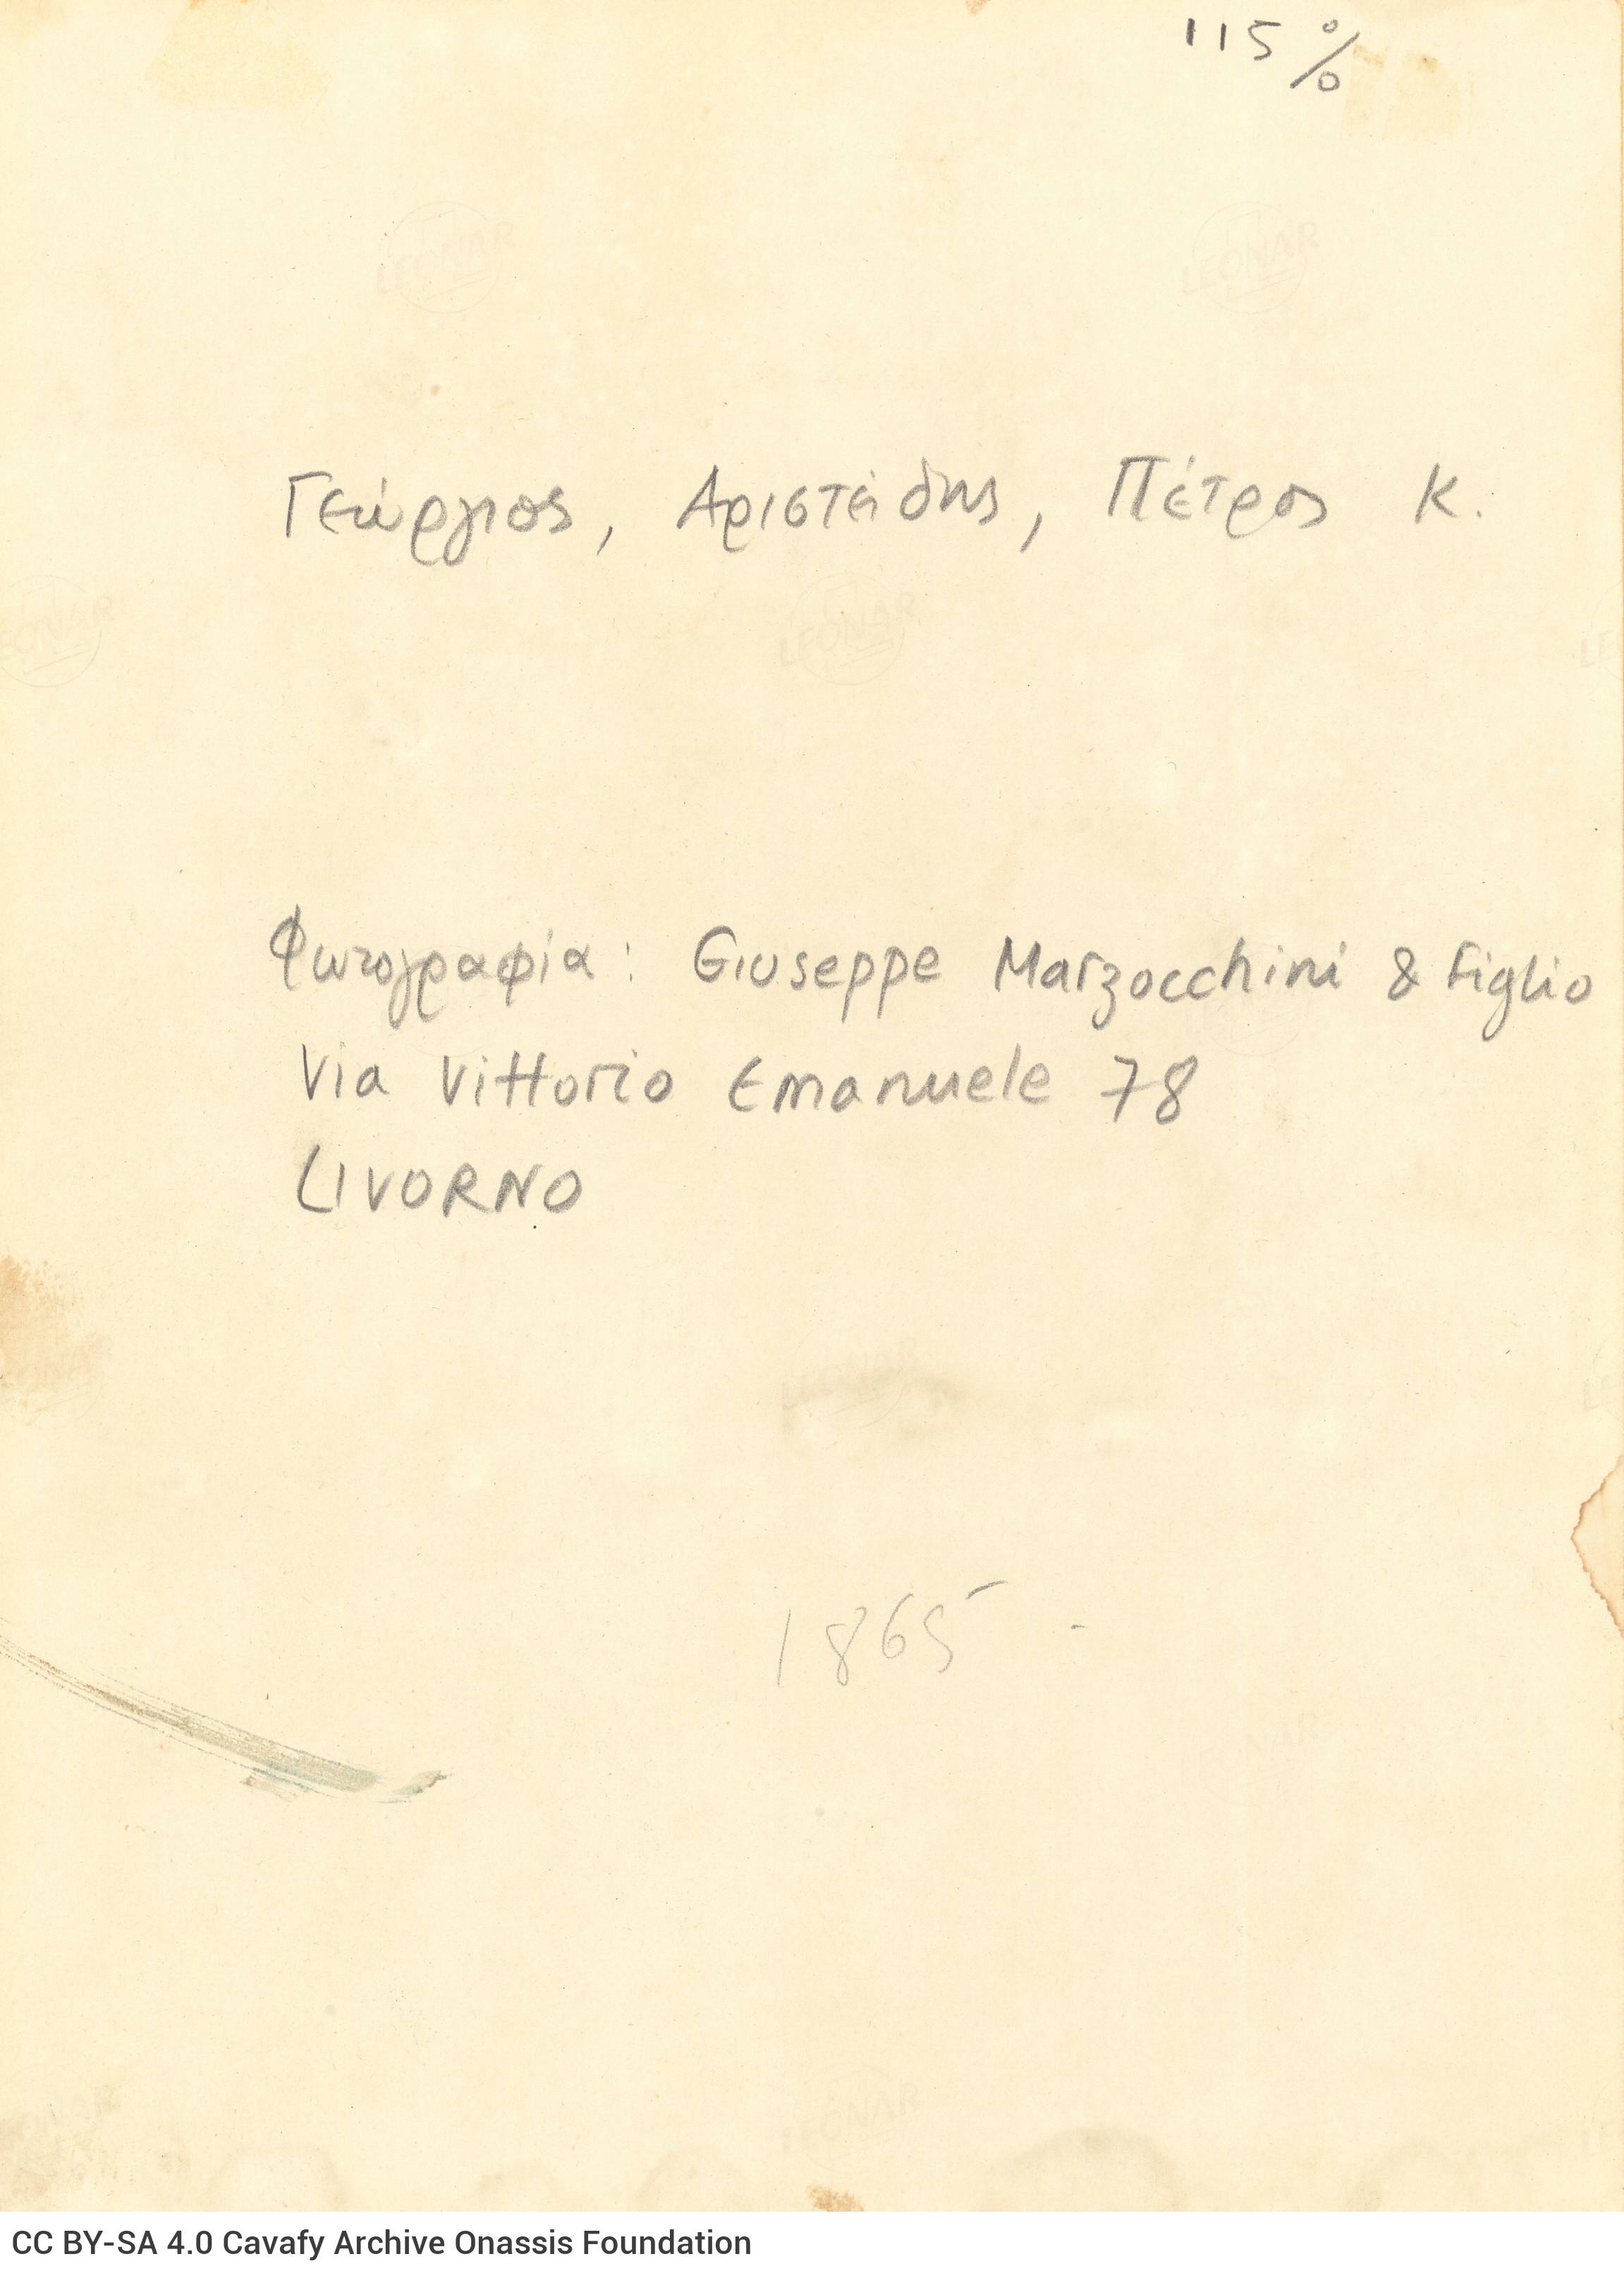 115%
Γεώργιος, Αριστείδης, Πέτρος Κ.
Φωτογραφία: Giuseppe Marzocchini & Figlio
Via Vittorio Emanuele 78
LIVORNO
1865 -
CC BY-SA 4.0 Cavafy Archive Onassis Foundation